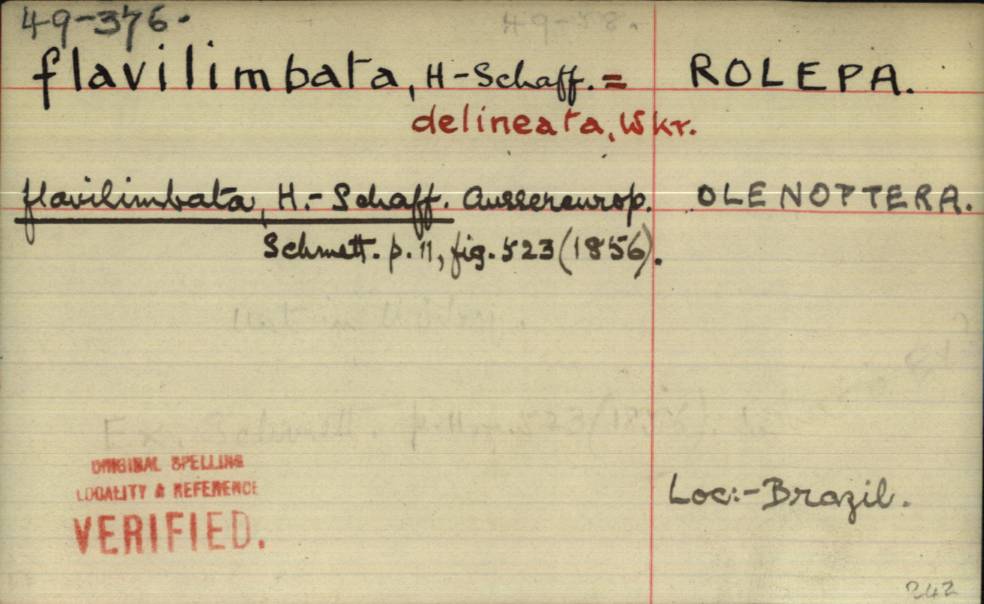 49-376.
flavilimbata, H-Schaff. = ROLEPA.
delineata, Wkr.
flavilimbata, H.-Schaff. Aussereurop. OLENOPTERA.
Schmett. p. 11, fig. 523 (1856).
ORIGINAL SPELLING
LOCALITY & REFERENCE
VERIFIED.
Loc:- Brazil.
242